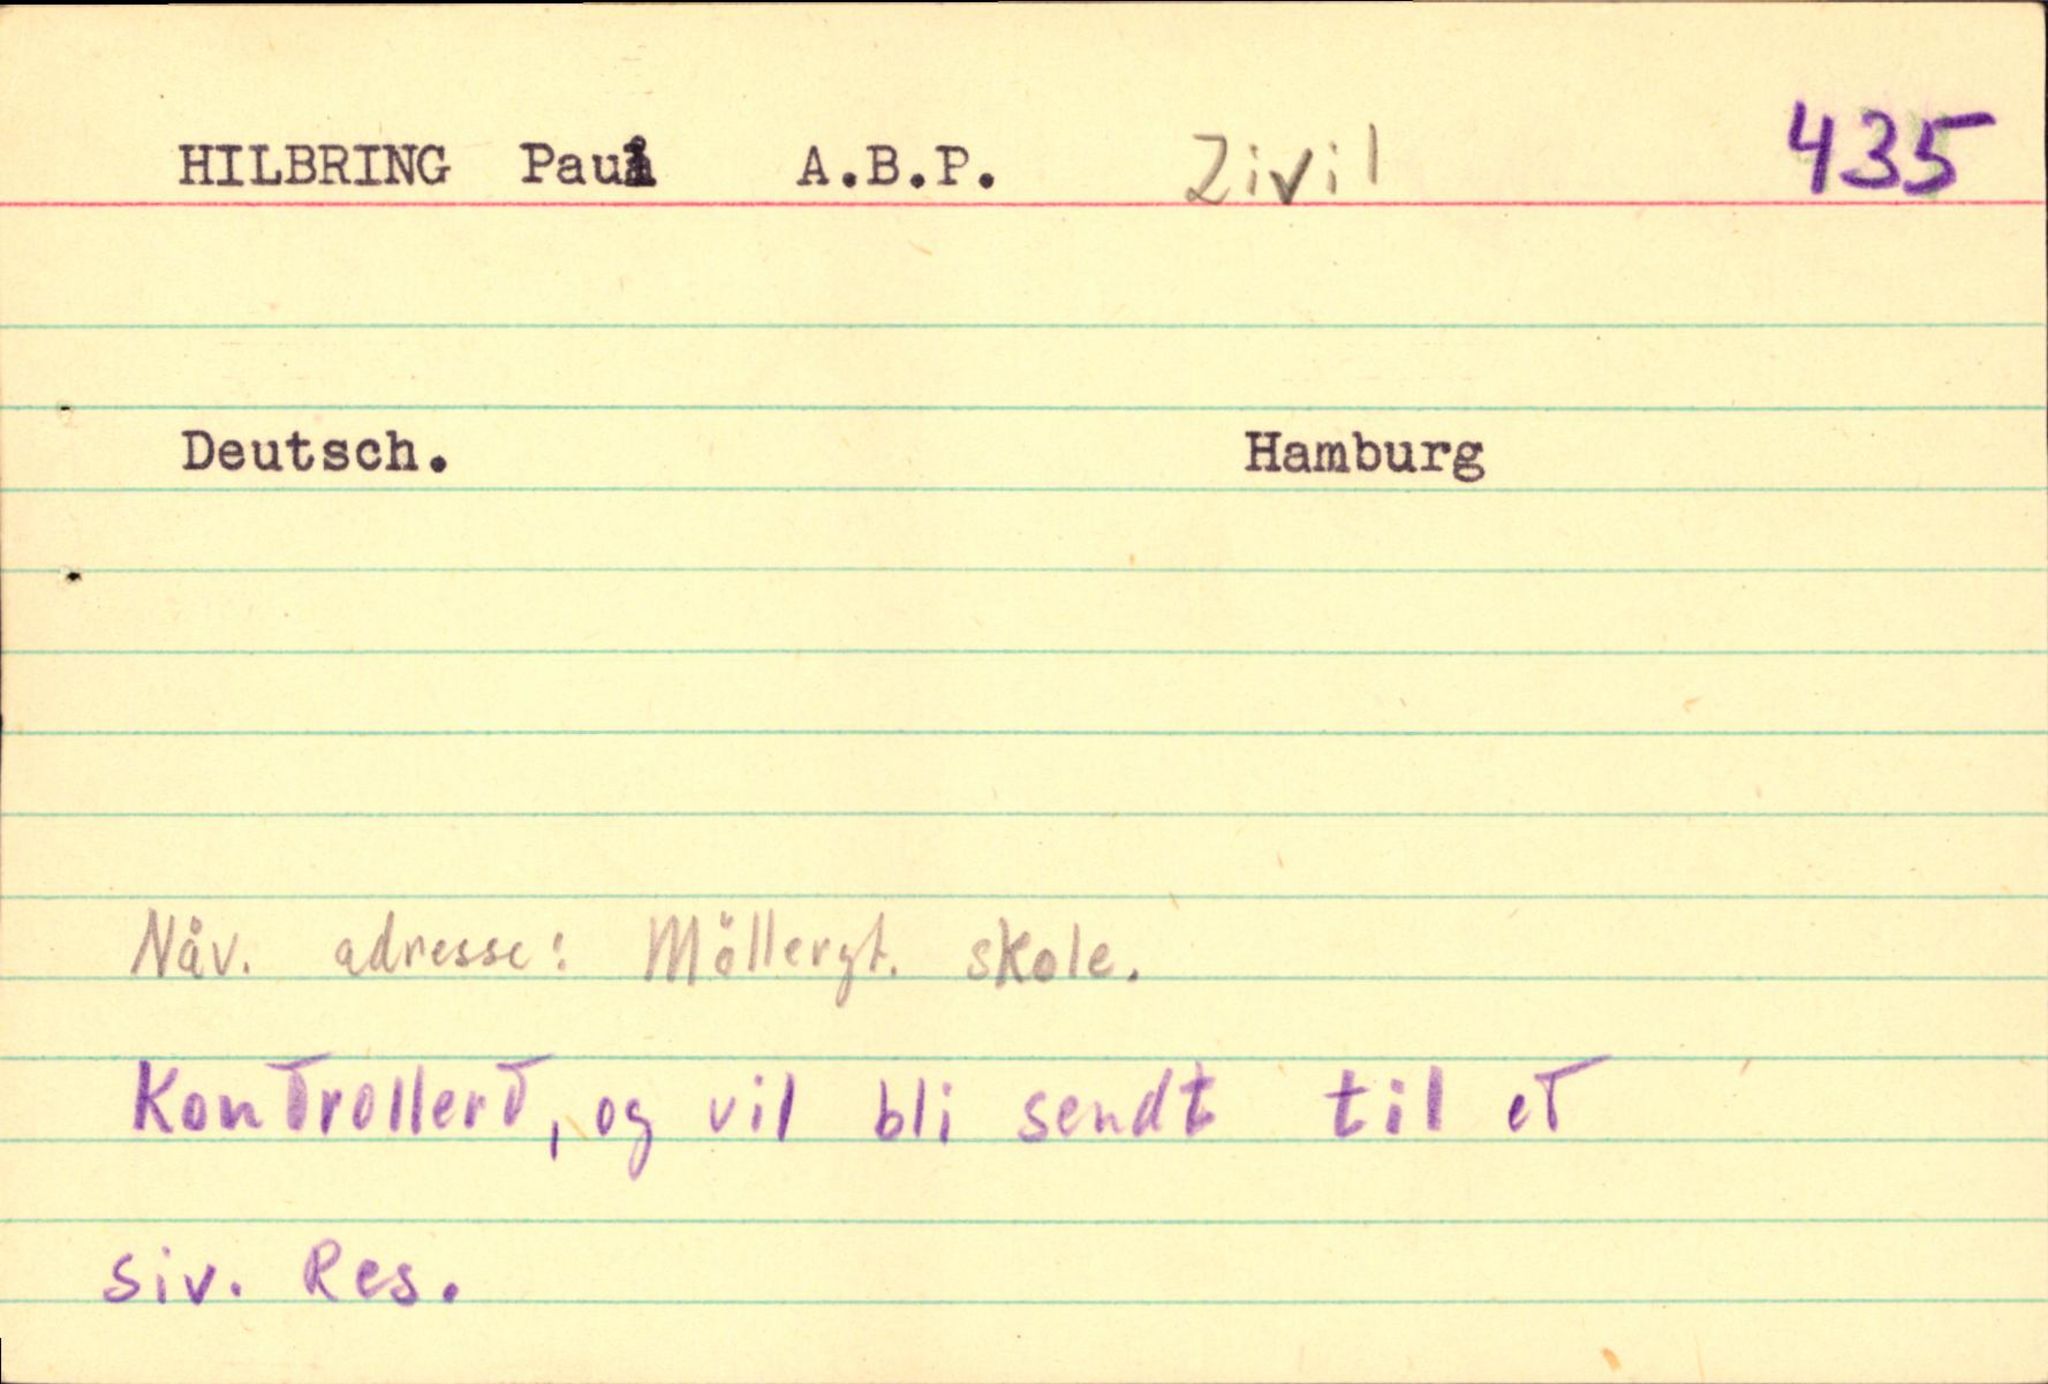 HILBRING Paul A.B.P. Zivil 435
Deutsch. Hamburg
Nåv. adresse: Möllergt. skole.
Kontrollert, og vil bli sendt til et
siv. Res.